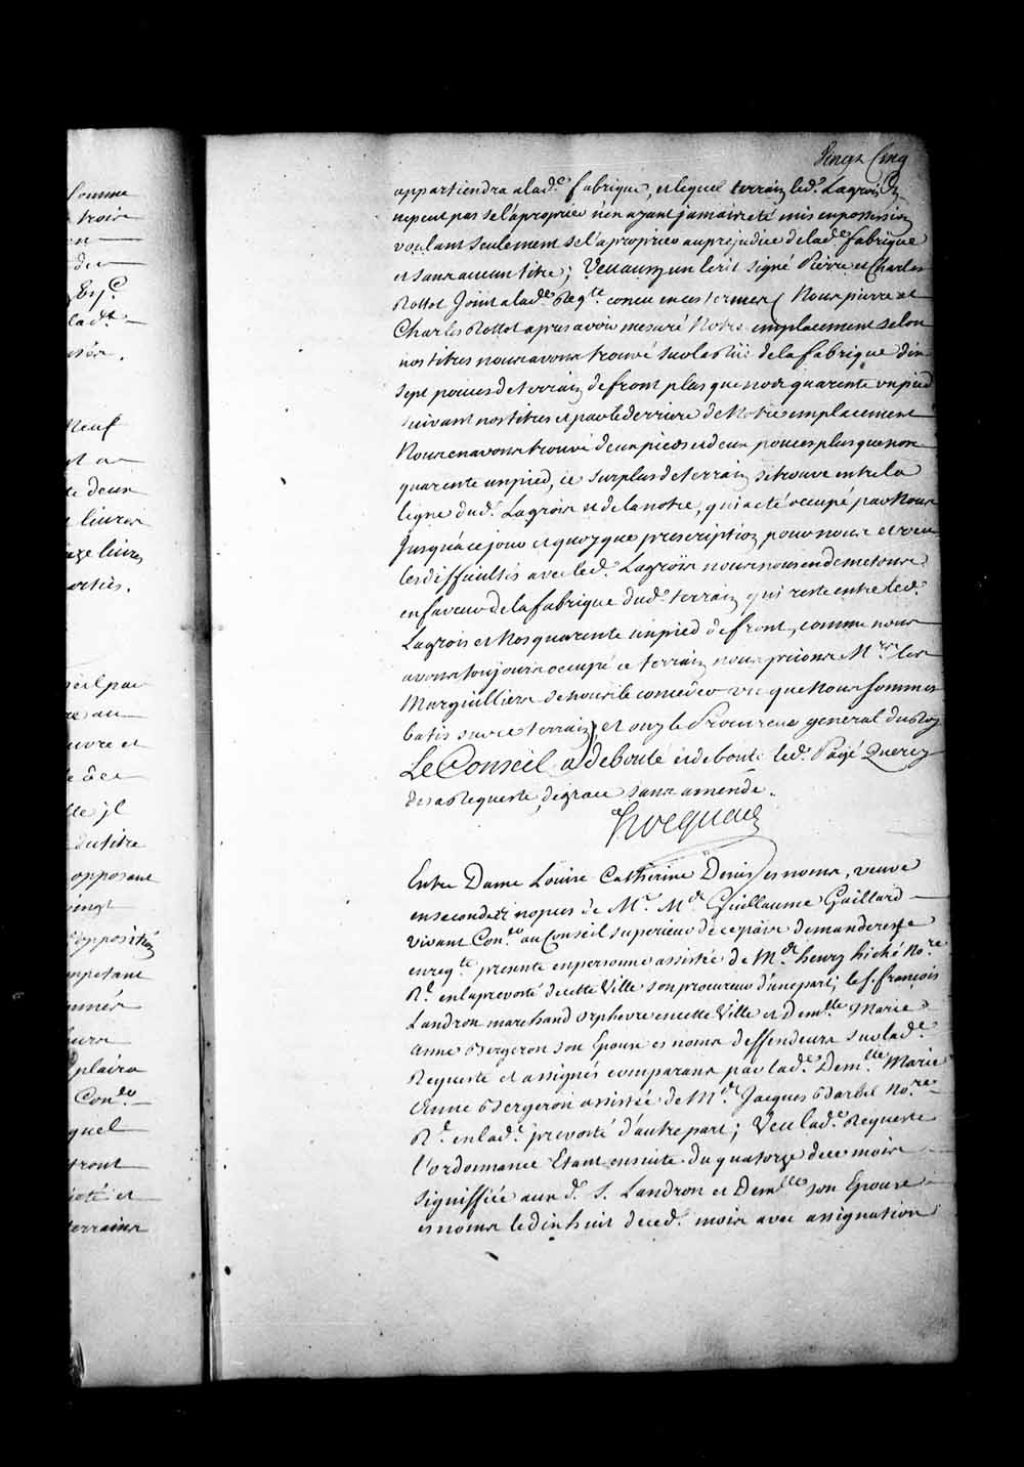 Somme
troix
en
de
Esp.
lad.e
Neuf
et
de deux
livres
livres
sorties.
au
euvre et
il
du titre
opposant
vingt
d'opposition
plaira
Con.er
quel
front
et
terrains
Vingt Cinq
appartiendra a lad.e fabrique, et lequel terrain led.t Lagrois
ne peut pas se l'aproprier n'en ayant jamais eté mis en possession
voulant seulement se l'aproprier au prejudice de lad.e fabrique
et sans aucun titre; Veu aussy un Ecrit signé Pierre et Charles
Rottot Joint a lad.e Req.te concu en ces termes ( Nous pierre et
Charles Rottot apres avoir mesuré Notre emplacement selon
nos titres nous avons trouvé sur la rüe de la fabrique dix
sept pouces de terrain de front plus que nos quarente un pied
suivant nos titres et par le derriere de Notre emplacement
Nous en avons trouvé deux pieds et deux pouces plus que nos
quarente un pied, ce surplus de terrain se trouve entre la
ligne dud.t Lagrois et de la notre, qui a eté occupé par Nous
Jusqu'a ce jour et quoyque prescription pour nous et veu
les difficultés avec led.t Lagrois nous nous en demetons
en faveur de la fabrique dud.t terrain qui reste entre led.t
Lagrois et Nos quarente un pied de front, comme nous
avons toujours occupé ce terrain nous prions M.rs les
Marguilliers de nous le conceder vu que Nous sommes
batis sur ce terrain), et ouy le Procureur general du Roy
Le Conseil a debouté et deboute led.t Pagé Quercy
de sa Requeste, de grace sans amende.
Hocquart
Entre Dame Louise Catherine Denis es noms, veuve
en secondes nopces de M.r M.e Guillaume Gaillard
vivant Con.er au Conseil superieur de ce païs demanderesse
en req.te presente en personne assistée de M.e henry hiché No.re
R.l en la prevosté de cette Ville son procureur d'une part; le s. françois
Landron marchand orphevre en cette Ville et Dem.lle Marie
Anne Bergeron son Epouse es noms deffendeurs sur lad.e
Requeste et assignés comparans par lad.e Dem.lle Marie
Anne Bergeron assistée de M.e Jacques Barbel No.re
R.l en lad.e prevosté d'autre part; Veu lad.e Requeste
l'ordonnance Etant ensuite du quatorze de ce mois
signiffiée aux d. s. Landron et Dem.lle son Epouse
es noms le dix huit de ced. mois avec assignation